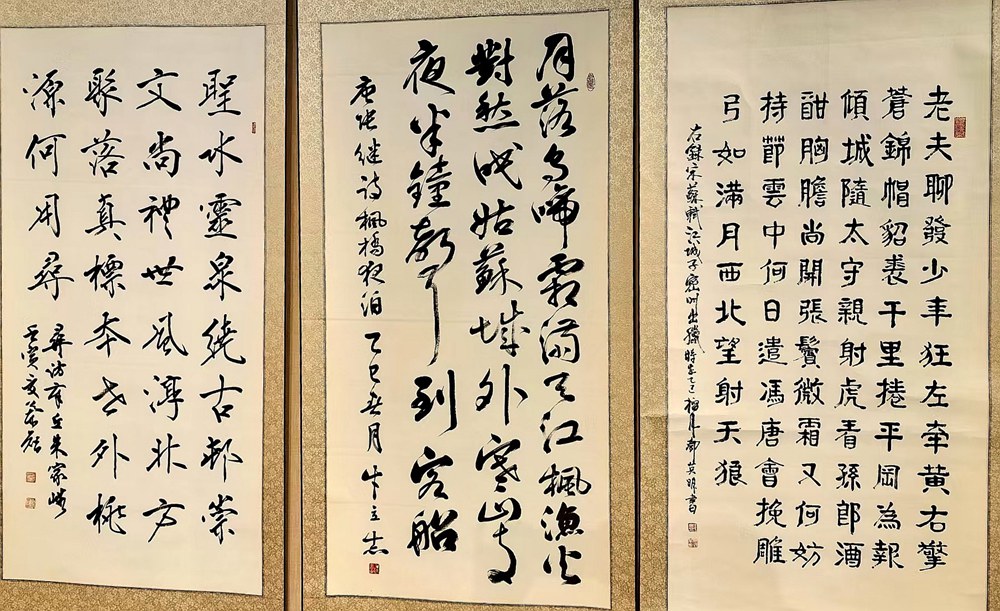 老夫聊發少年狂左牽黃右擎
蒼錦帽貂裘千里捲平岡為報
傾城隨太守親射虎看孫郎酒
酣胸膽尚開張鬢微霜又何妨
持節雲中何日遣馮唐會挽雕
弓如滿月西北望射天狼
右錄宋蘇軾江城子密州出獵時在乙巳桐月郝英明書
月落烏啼霜滿天江楓漁火
對愁眠姑蘇城外寒山寺
夜半鐘聲到客船
唐張繼詩楓橋夜泊 乙巳春月 牛立志
聖水靈泉繞古邨崇
文尚禮世風淳北方
聚落真標本世外桃
源何用尋
尋訪章丘朱家峪